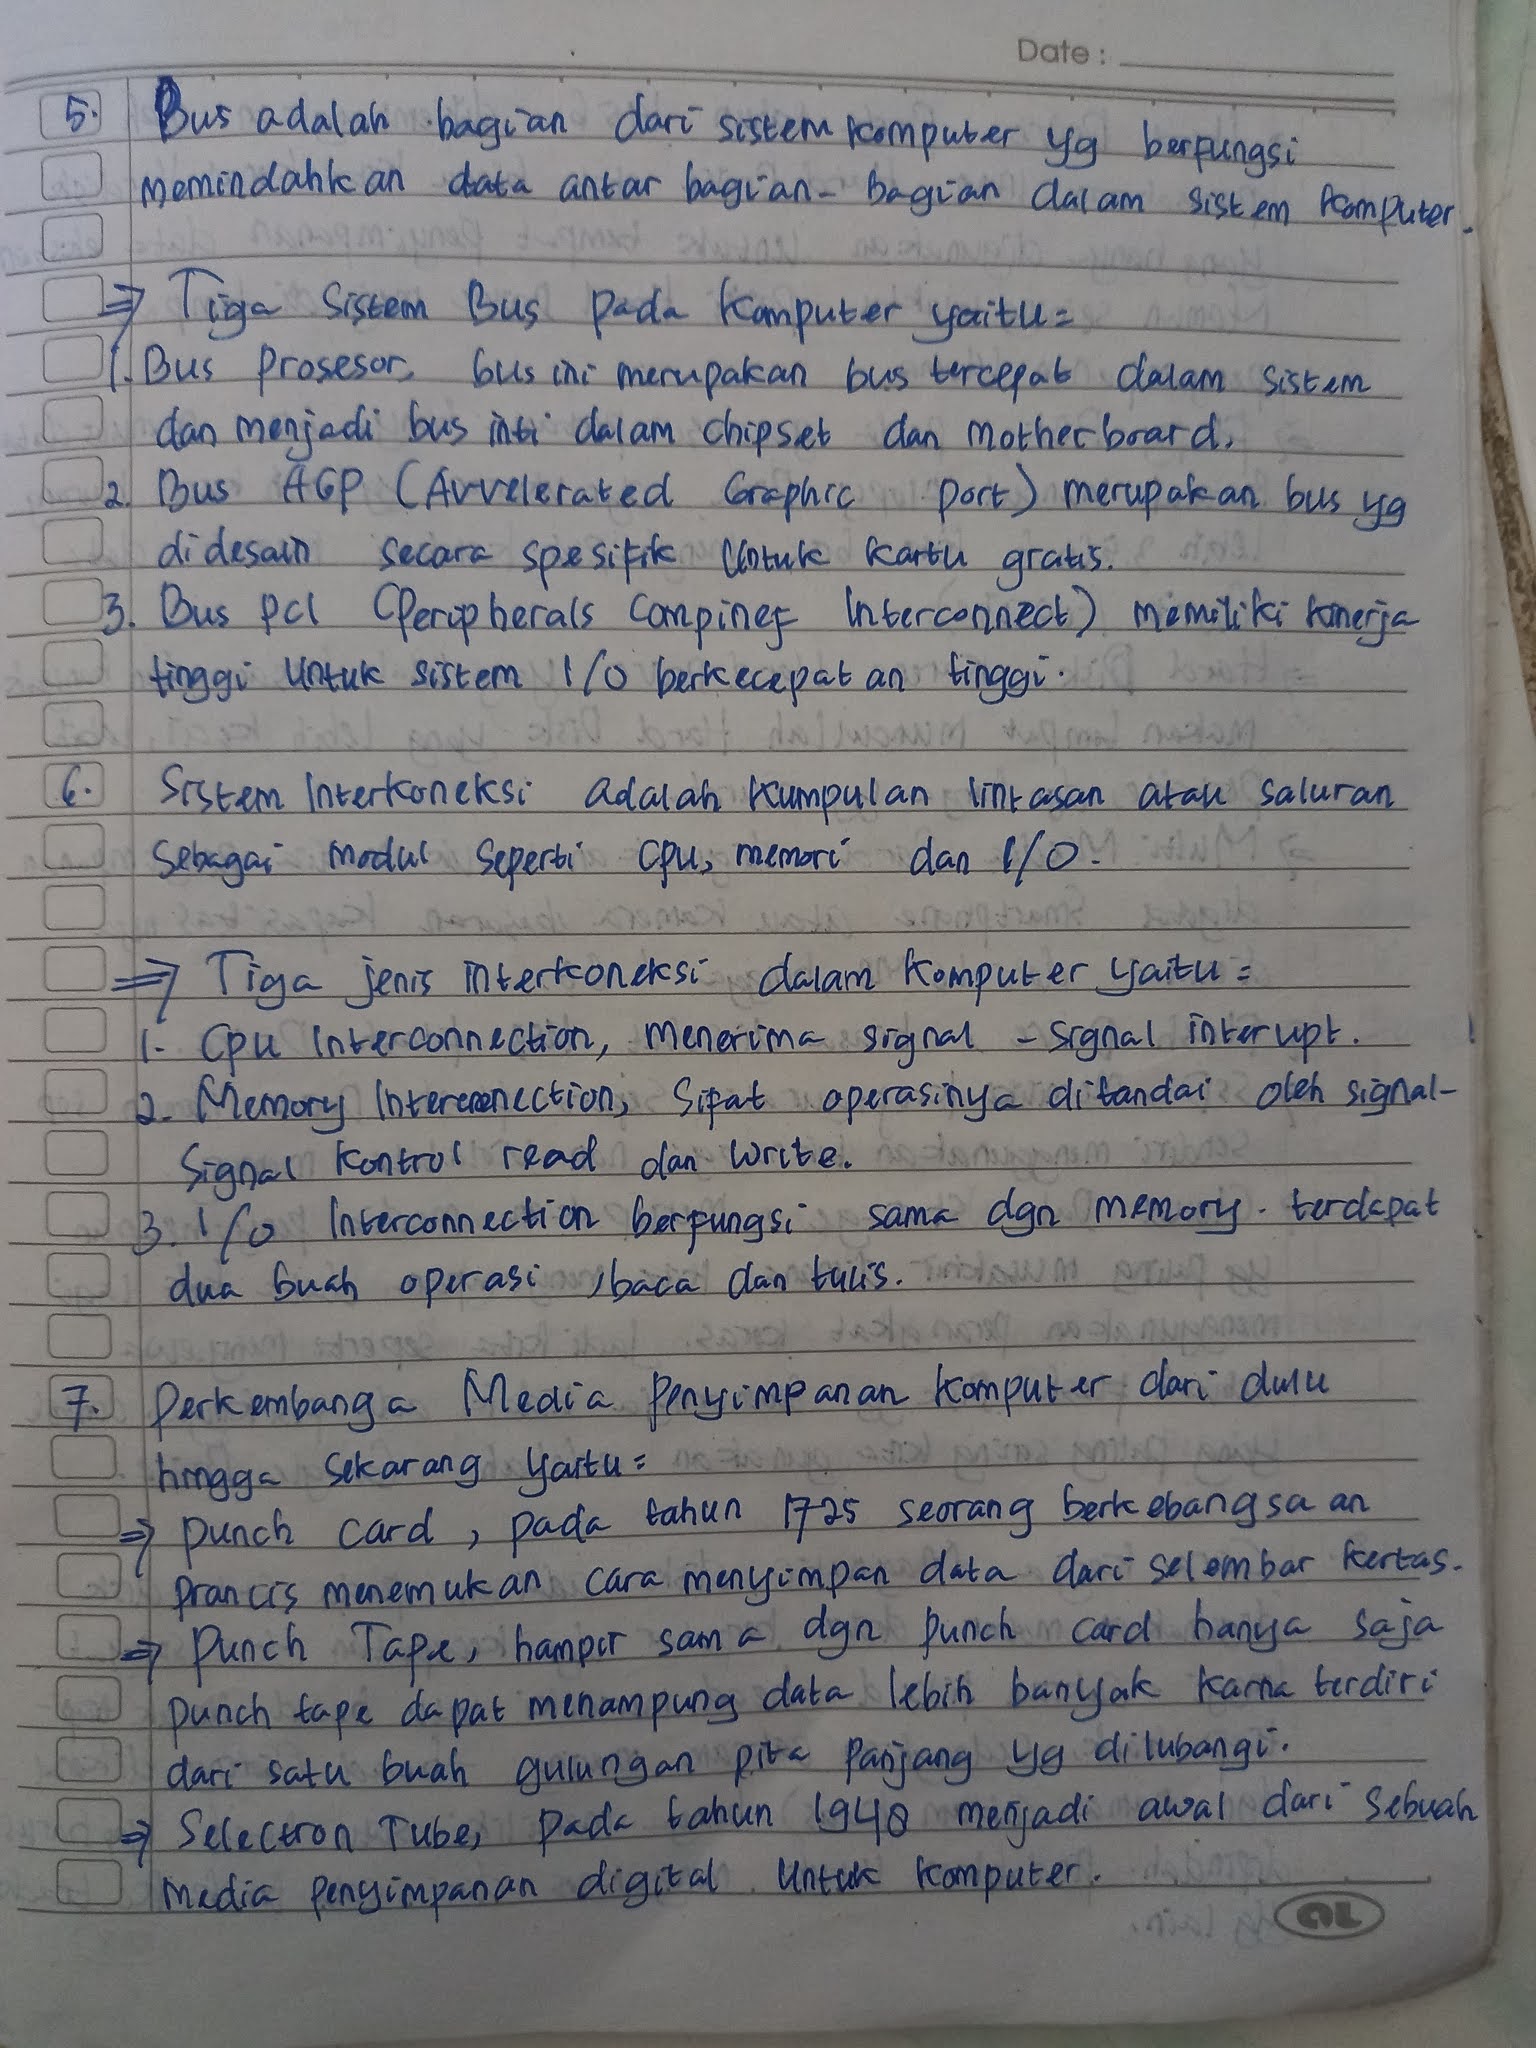 Date :
5. Bus adalah bagian dari sistem komputer yg berfungsi
memindahkan data antar bagian - bagian dalam sistem komputer.
⇒ Tiga Sistem Bus pada komputer yaitu =
1. Bus Prosesor, bus ini merupakan bus tercepat dalam sistem
dan menjadi bus inti dalam chipset dan motherboard.
2. Bus AGP (Avvelerated Graphic port) merupakan bus yg
didesain secara spesifik untuk kartu gratis.
3. Bus pcl (Peripherals Compinef Interconnect) memiliki kinerja
tinggi untuk sistem I/O berkecepatan tinggi.
6. Sistem Interkoneksi adalah kumpulan lintasan atau saluran
sebagai modul seperti cpu, memori dan I/O.
⇒ Tiga jenis interkoneksi dalam komputer yaitu =
1. Cpu Interconnection, menerima signal - signal interupt.
2. Memory Interconnection, sifat operasinya ditandai oleh signal-
signal kontrol read dan write.
3. I/O Interconnection berfungsi sama dgn memory. terdapat
dua buah operasi, baca dan tulis.
7. Perkembanga Media penyimpanan komputer dari dulu
hingga sekarang yaitu =
⇒ punch card, pada tahun 1725 seorang berkebangsaan
prancis menemukan cara menyimpan data dari selembar kertas.
⇒ Punch Tape, hampir sama dgn punch card hanya saja
punch tape dapat menampung data lebih banyak karna terdiri
dari satu buah gulungan pita panjang yg dilubangi.
⇒ Selectron Tube, pada tahun 1948 menjadi awal dari sebuah
media penyimpanan digital untuk komputer.